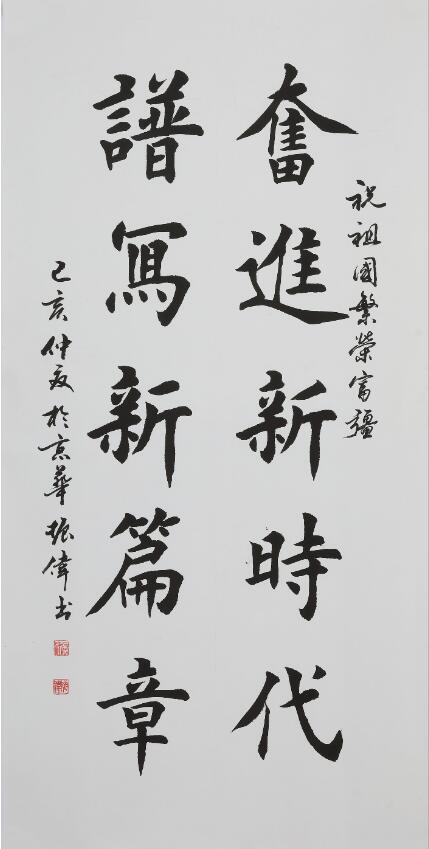 祝祖國繁榮富彊
奮進新時代
譜冩新篇章
己亥仲夏於京華振偉書